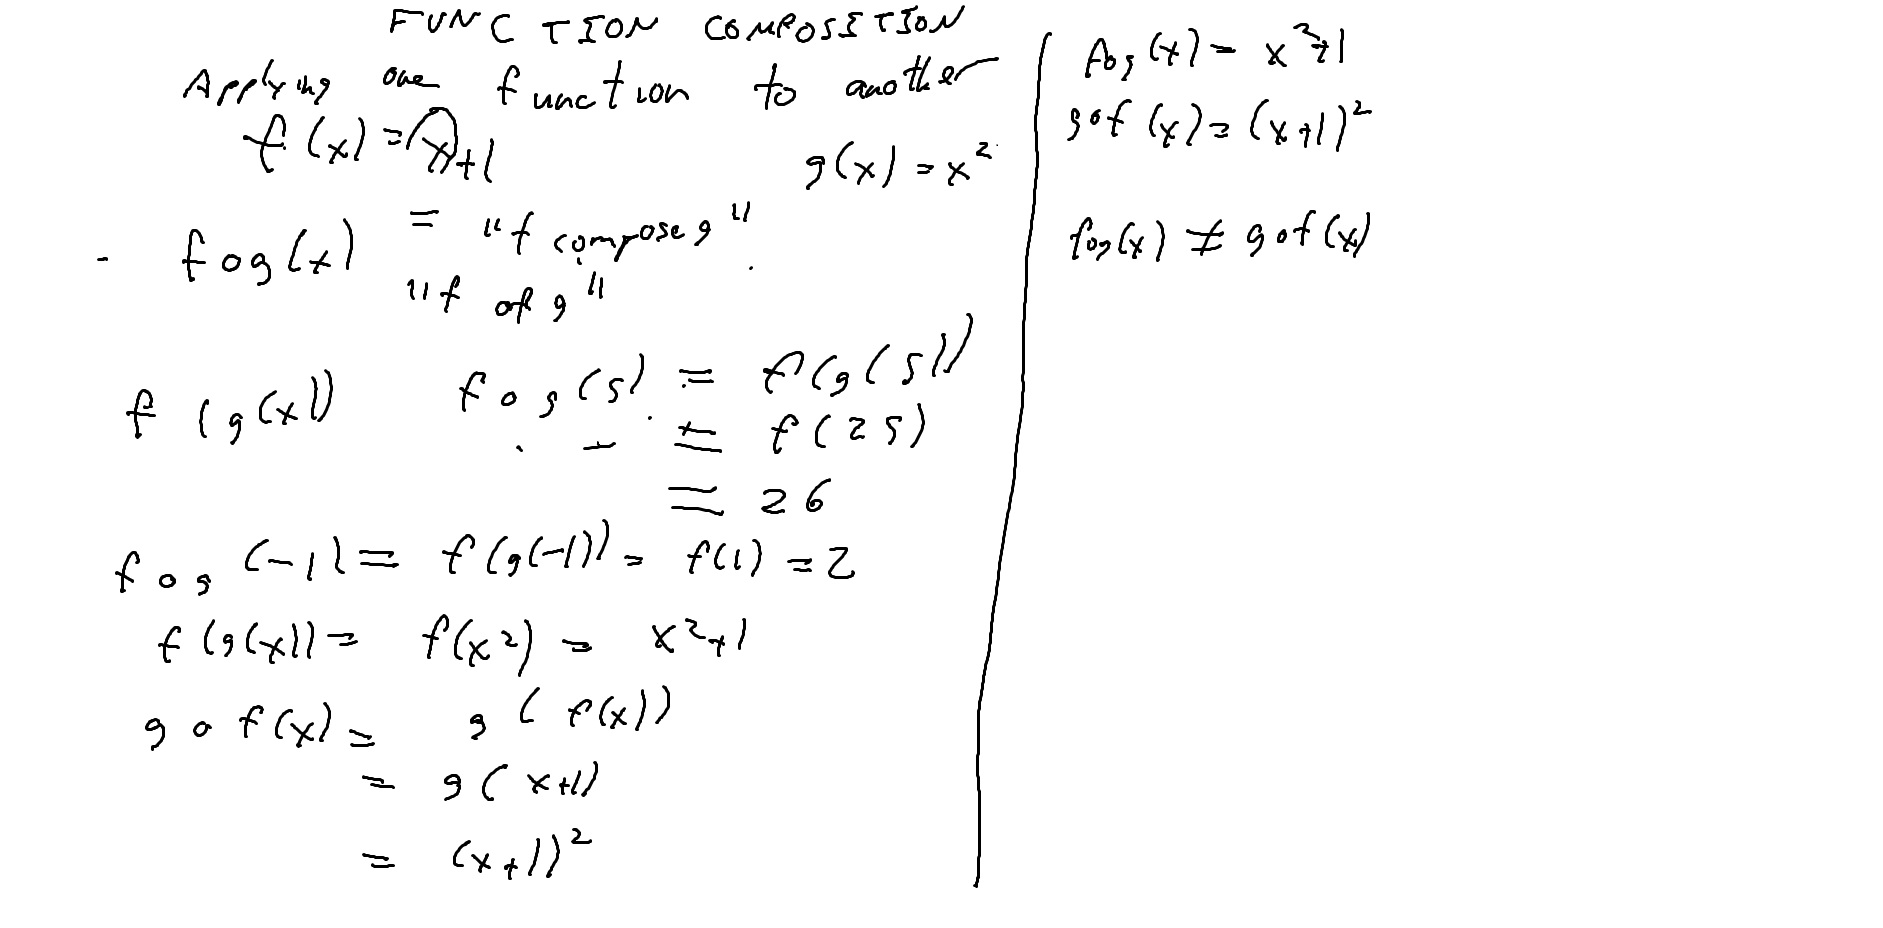 FUNCTION COMPOSITION
Applying one function to another
f(x) = x+1
g(x) = x²
fog(x) = "f compose g"
"f of g"
f(g(x)) fog(5) = f(g(5))
= f(25)
= 26
fog(-1) = f(g(-1)) = f(1) = 2
f(g(x)) = f(x²) = x²+1
gof(x) = g(f(x))
= g(x+1)
= (x+1)²
fog(x) = x²+1
gof(x) = (x+1)²
fog(x) ≠ gof(x)